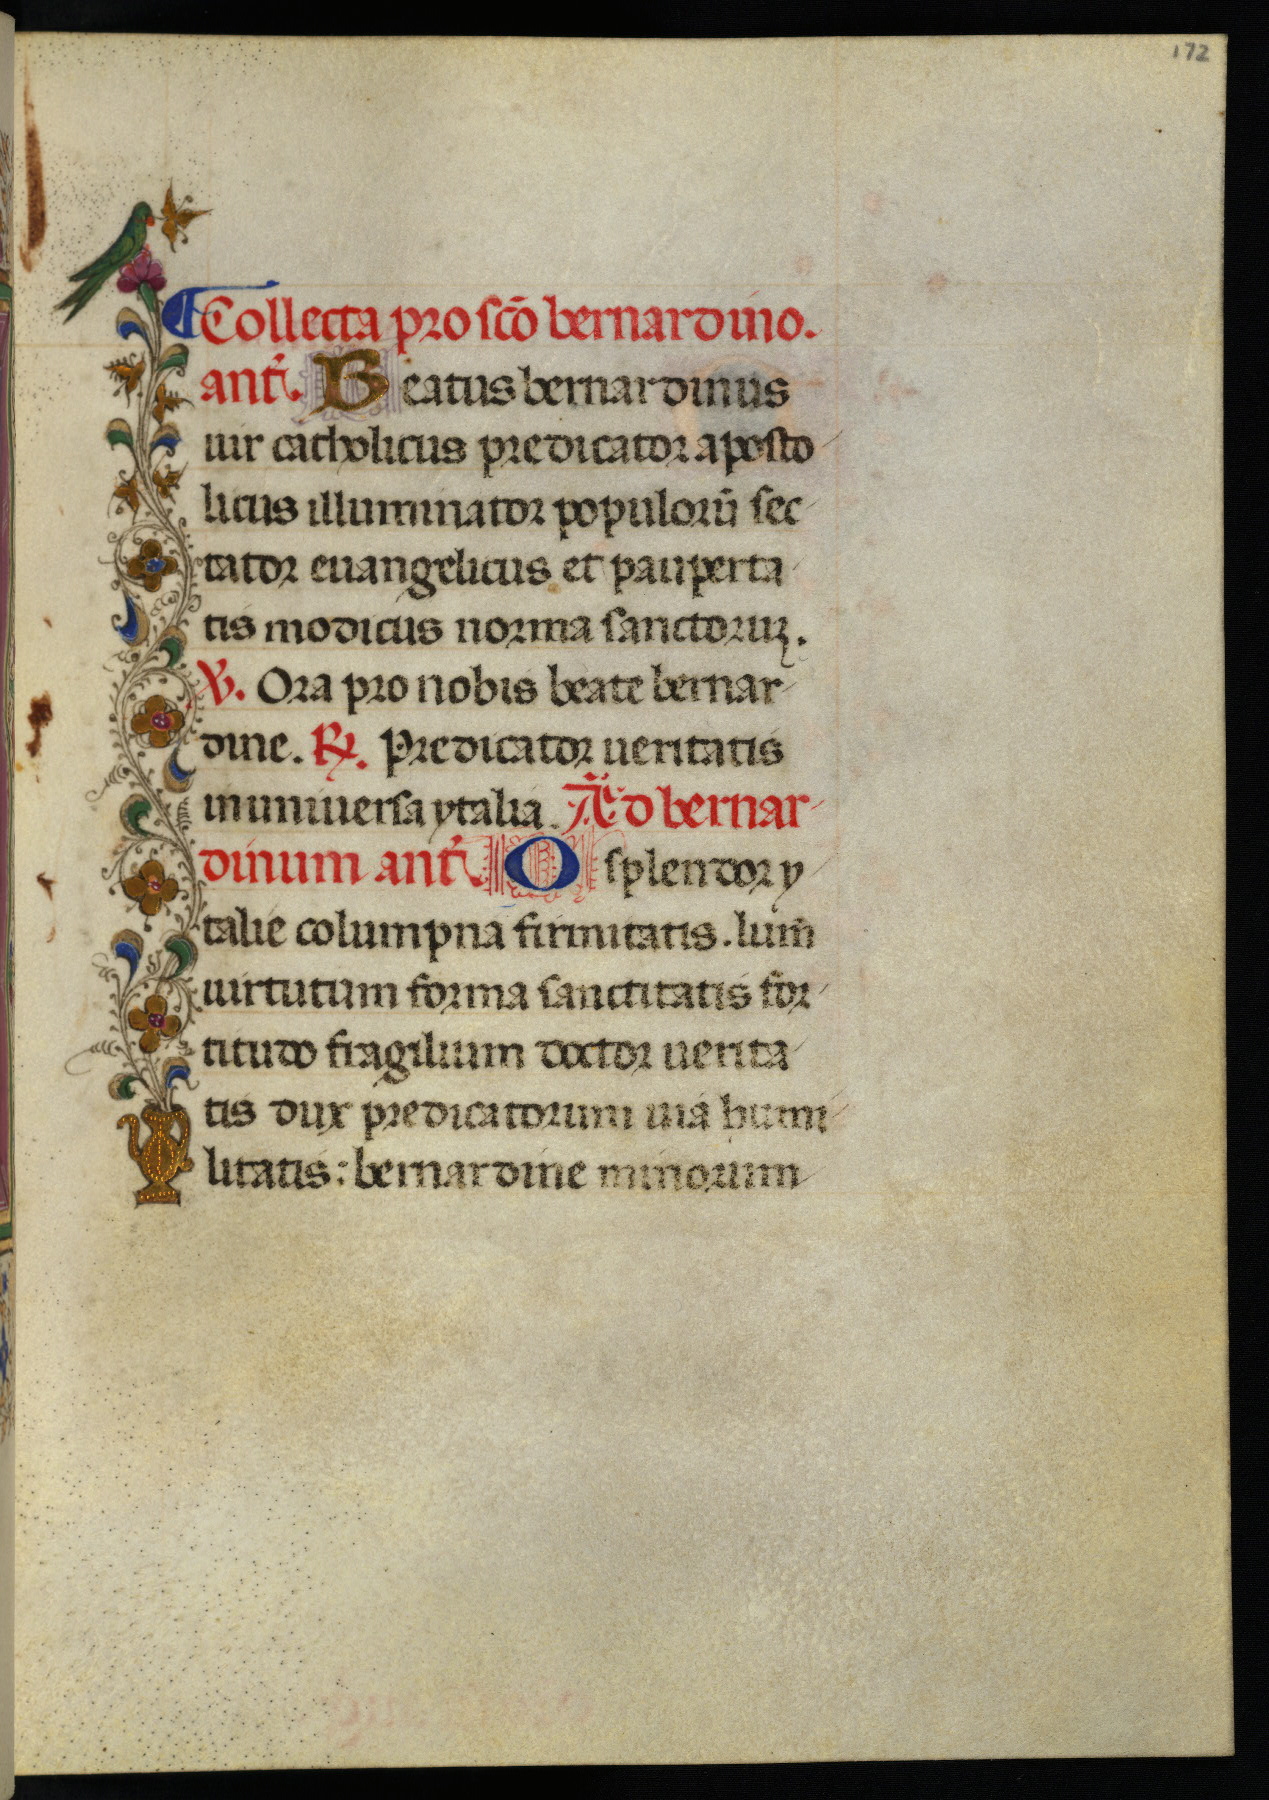 172
Collecta pro sc̄o bernardino.
ant̄. Beatus bernardinus
uir catholicus predicator aposto
licus illuminator populorū sec
tator euangelicus et pauperta
tis modicus norma sanctoruꝫ.
℣. Ora pro nobis beate bernar
dine. ℟. Predicator ueritatis
in uniuersa ytalia. Ad bernar
dinum ant̄. O splendor y
talie columpna firmitatis. lum̄
uirtutum forma sanctitatis for
titudo fragilium doctor uerita
tis dux predicatorum uia humi
litatis: bernardine minorum